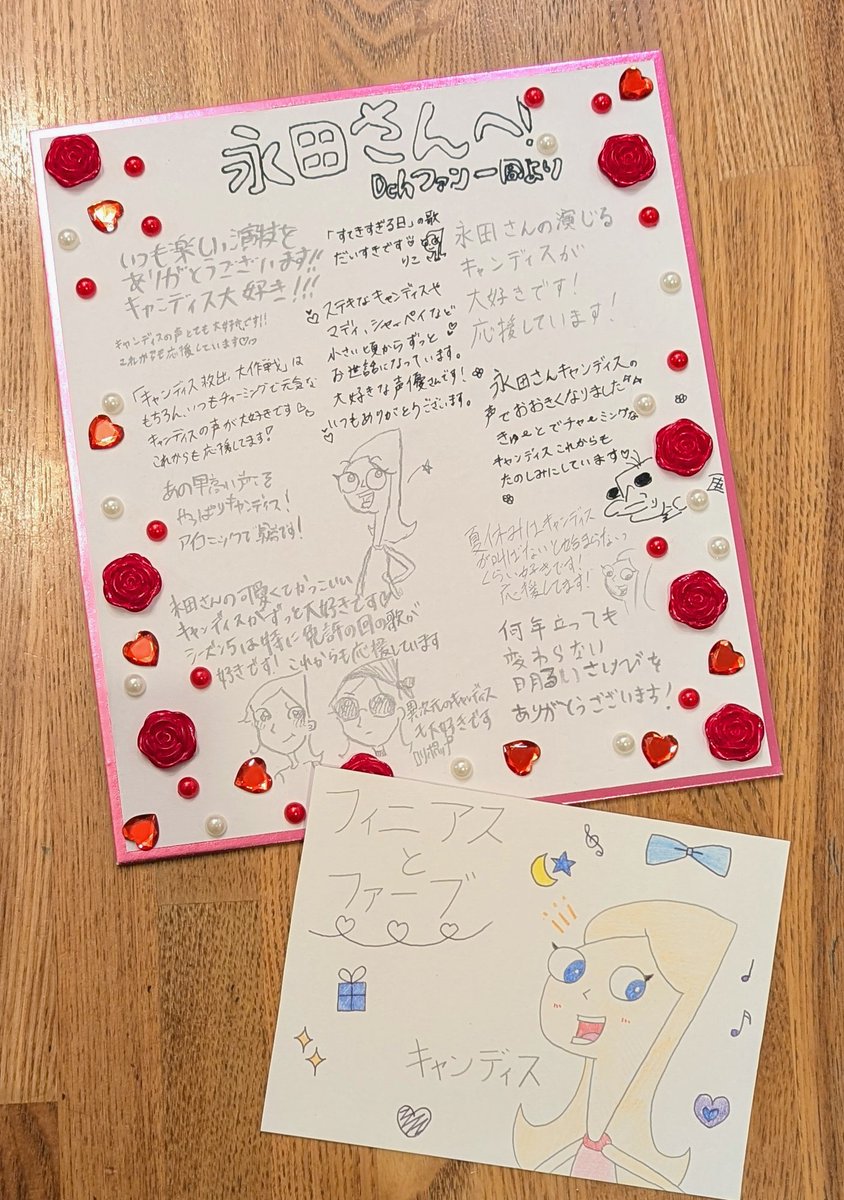 永田さんへ!
Dchファン一同より
いつも楽しい演技を
ありがとうございます!!
キャンディス大好き!!!
キャンディスの声とても大好きです!!
これからも応援しています♡
「キャンディス救出大作戦」は
もちろん、いつもチャーミングで元気な
キャンディスの声が大好きです
これからも応援してます!
あの早高い声こそ
やっぱりキャンディス!
アイコニックで最高です!
永田さんの可愛くてかっこいい
キャンディスがずっと大好きです♡
シーズン5は特に免許の回の歌が
好きです! これからも応援しています
「すてきすぎる日」の歌
だいすきです
りこ
ステキなキャンディスや
マディ、シャーペイなど
小さい頃からずっと
お世話になっています。
大好きな声優さんです!
いつもありがとうございます。
永田さんの演じる
キャンディスが
大好きです!
応援しています!
永田さんキャンディスの
声でおおきくなりました
きゅーとでチャーミングな
キャンディスこれからも
たのしみにしています♡
夏休みはキャンディス
が叫ばないと始まらないっ
くらい好きです!
応援してます!
何年立っても
変わらない
明るいさけびを
ありがとうございます!
異次元のキャンディス
も大好きです
フィニアス
と
ファーブ
キャンディス